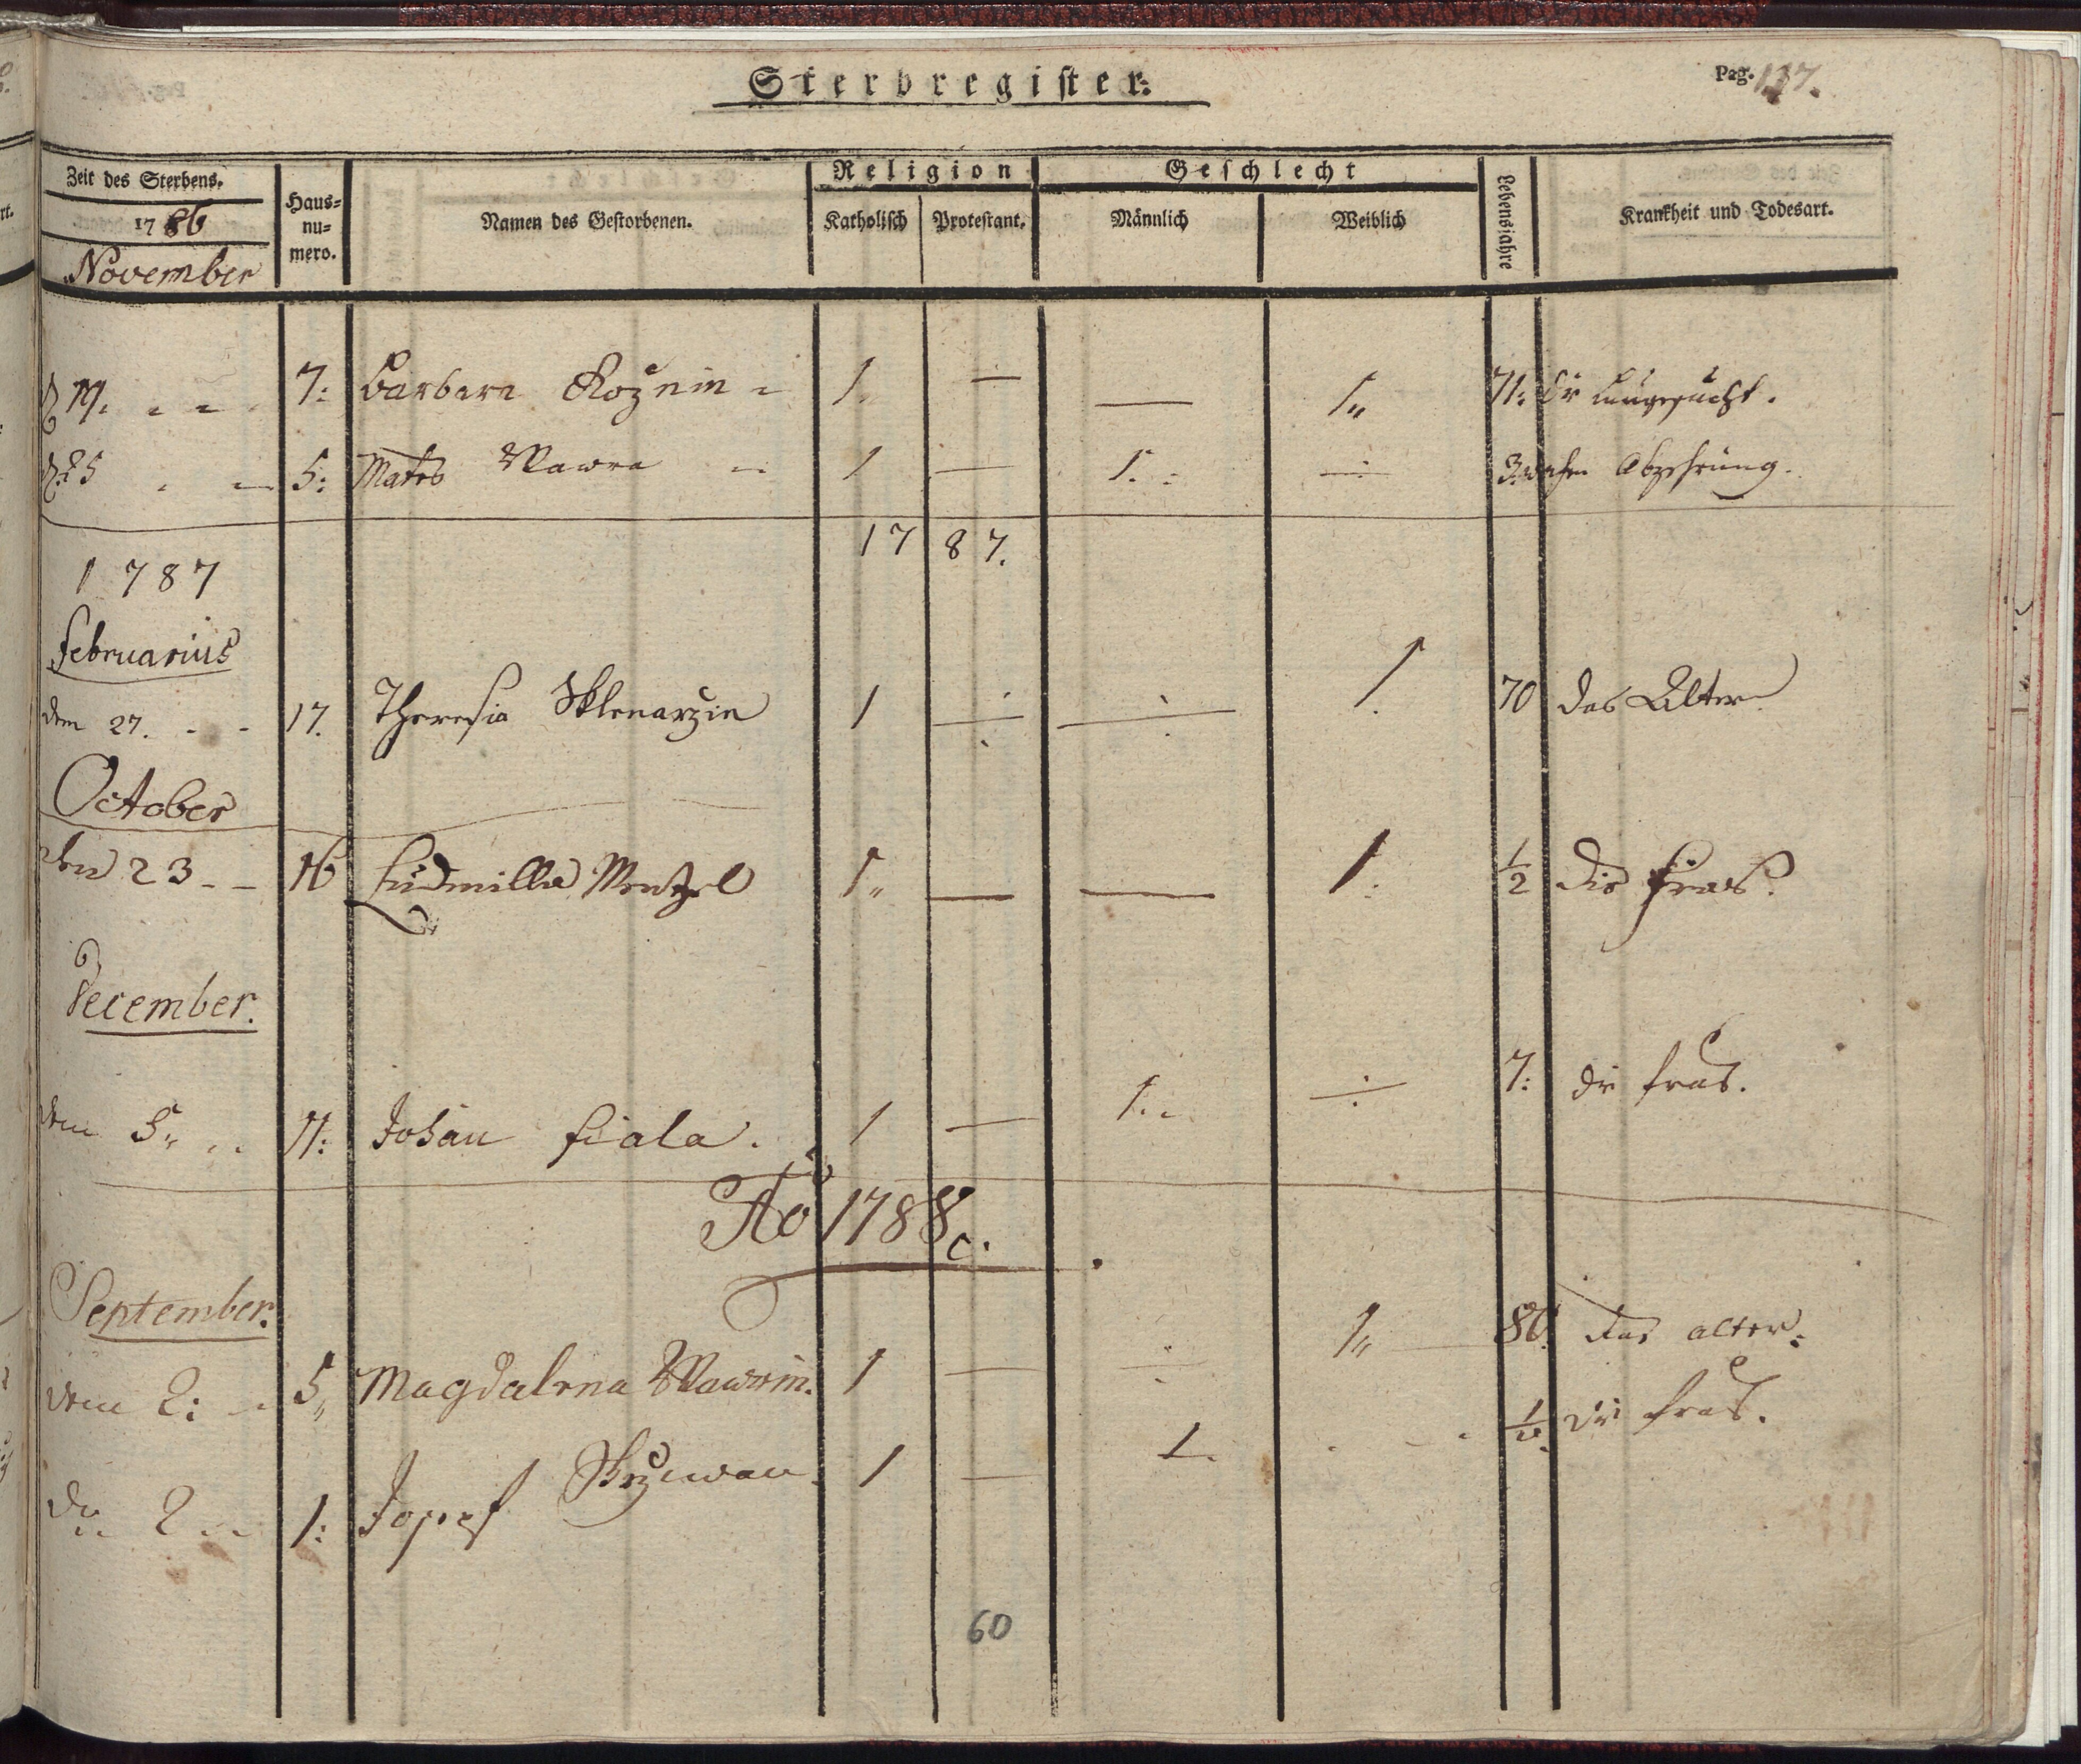 Sterbregister.
Pag. 137.
Zeit des Sterbens.
1786
November
Haus-
nu-
mero.
Namen des Gestorbenen.
Religion
Katholisch Protestant.
Geschlecht
Männlich Weiblich
Lebensjahre
Krankheit und Todesart.
7: Barbara 1. — — 1„ 71: die Lungesucht.
25 — 5: Mates Wawra 1 — 1. — 3 wochen Abzehrung.
1787.
1787
Februarius
den 27. - - 17. Theresia Sklenarzin 1 — — 1. 70 das Alter
October
den 23 - - 16 Ludmilla Wentzel 1„ — — 1. 1/2 die Frais.
December.
den 5„ 11: Johan Fiala. 1 — 1. — 7: die frais.
Ao 1788
September.
den 2: 5„ Magdalena Wawrin. 1 — — 1„ 80. das alter.
den 2 1: Josef 1 — 1 - - die frais.
60